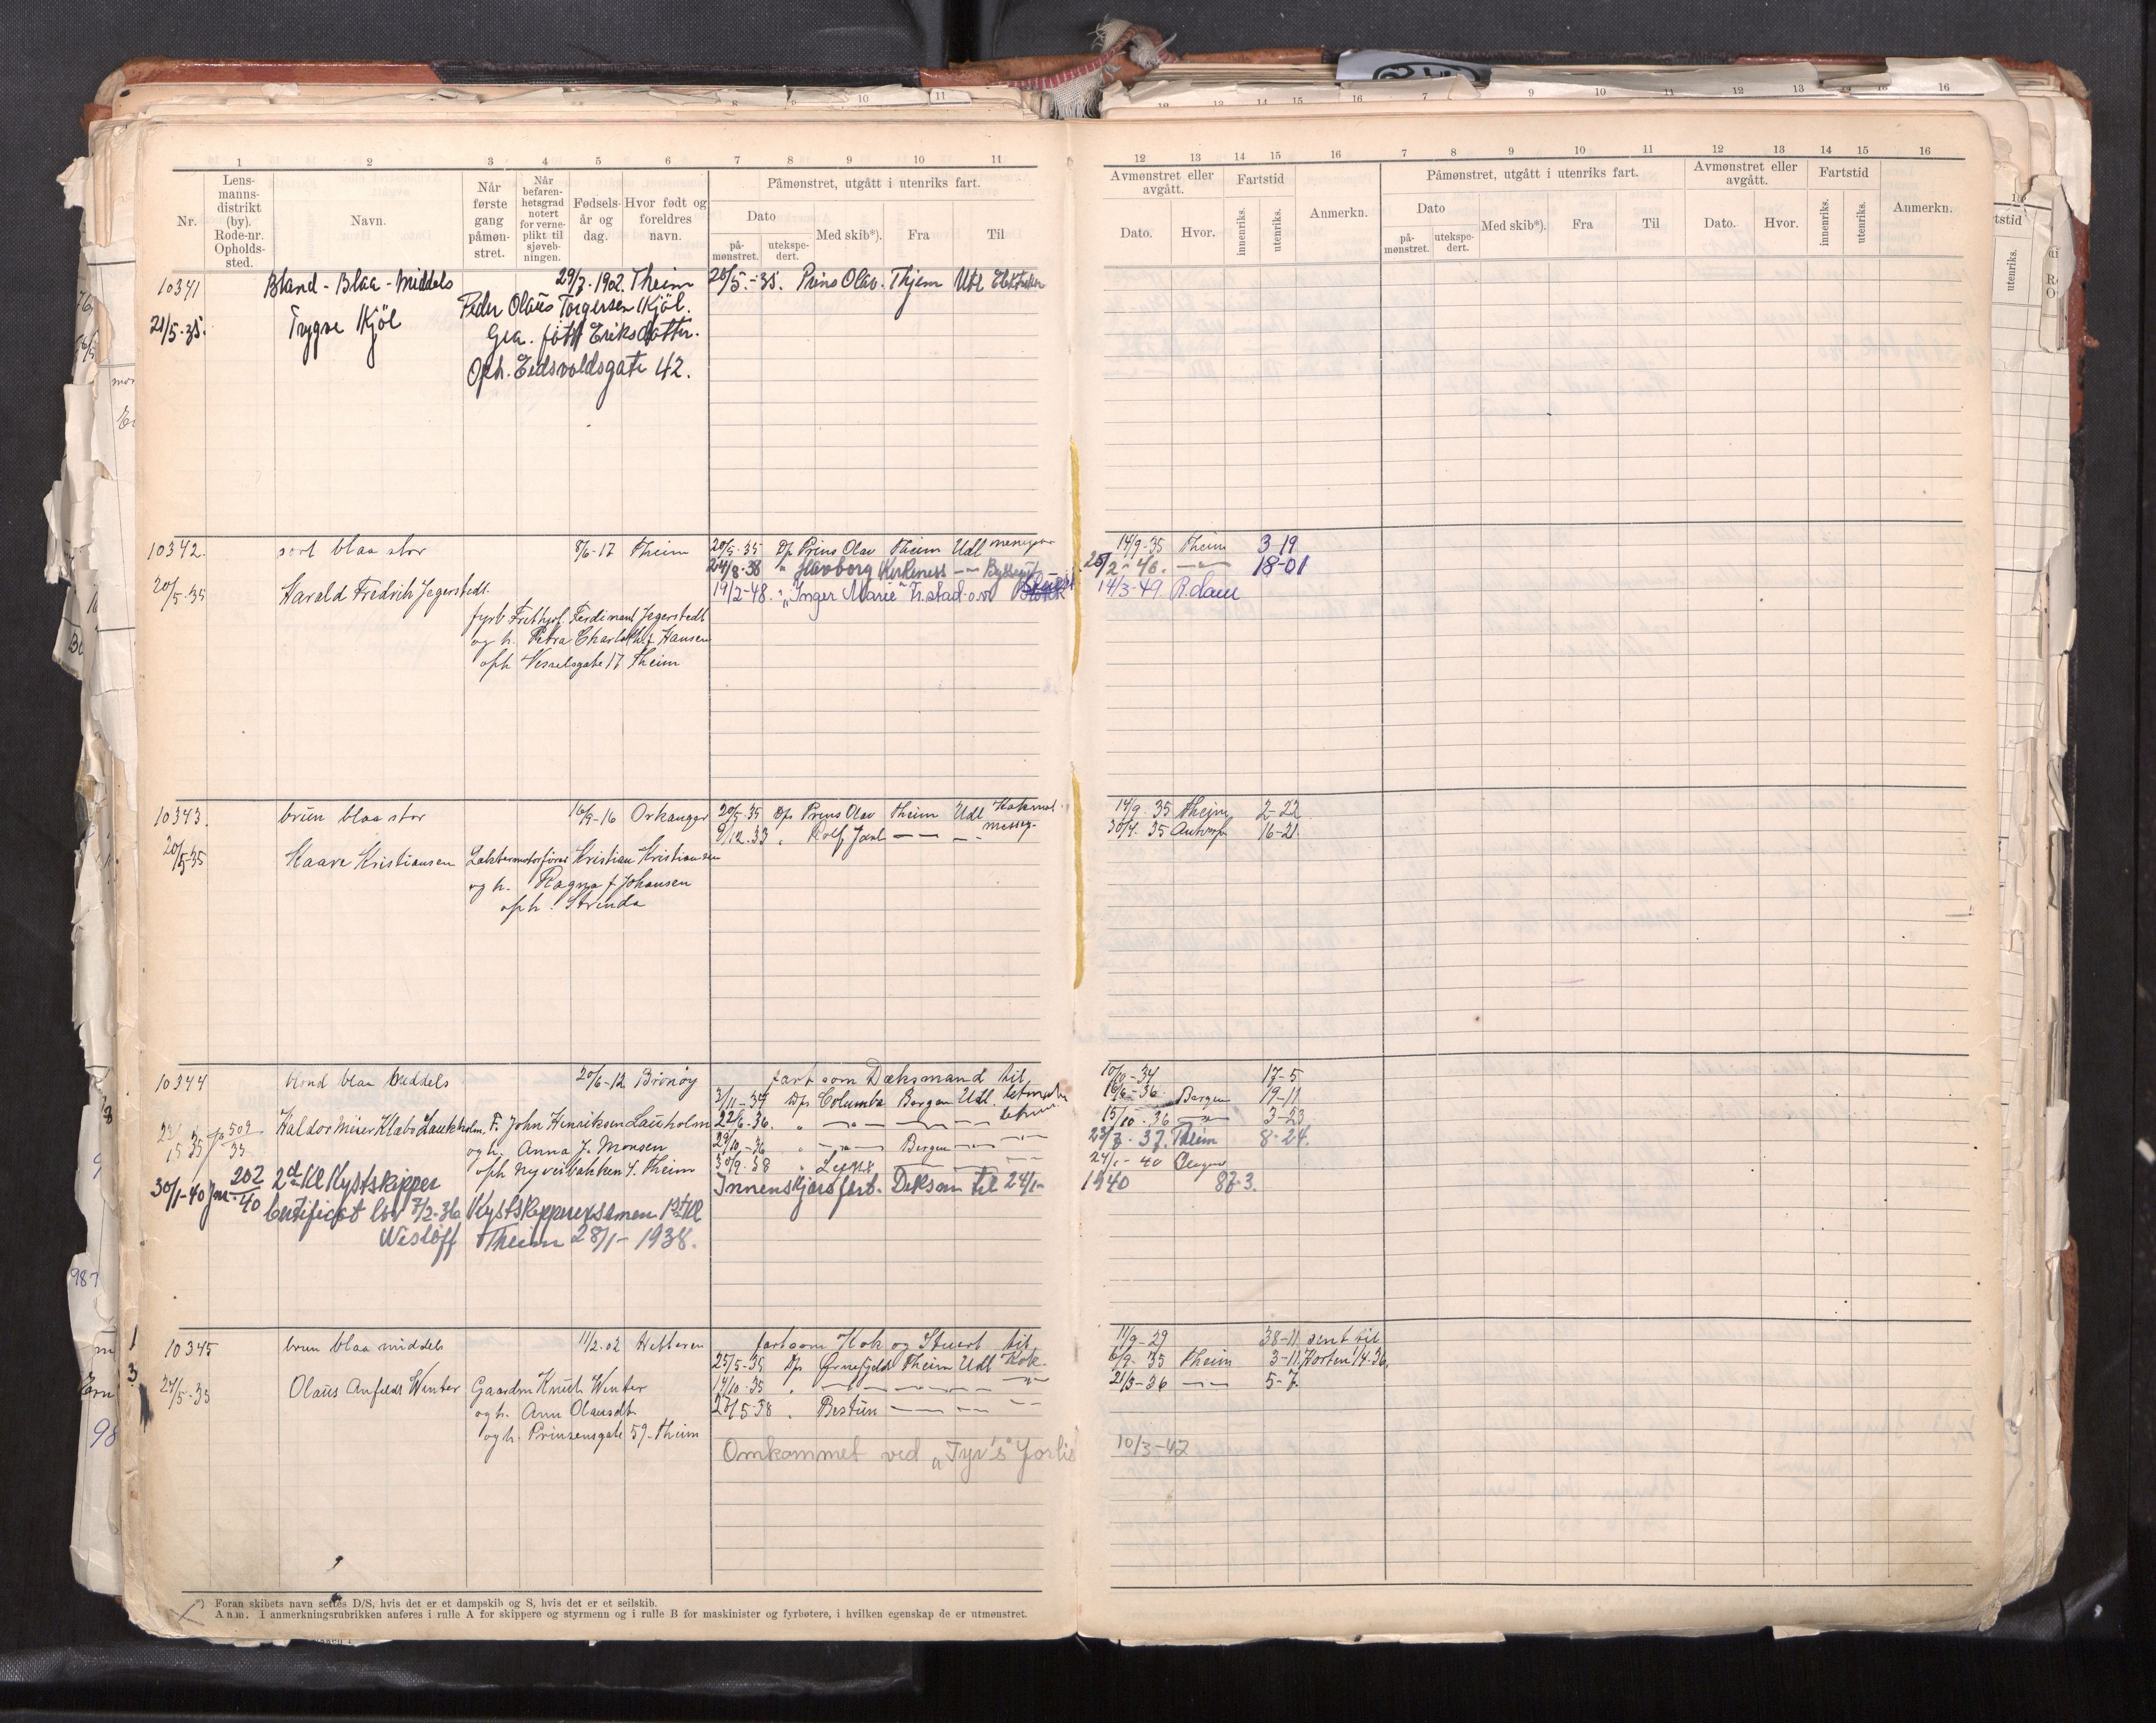 1 2 3 4 5 6 7 8 9 10 11
Nr.
Lens-
manns-
distrikt
(by).
Rode-nr.
Opholds-
sted.
Navn.
Når
første
gang
påmøn-
stret.
Når
befaren-
hetsgrad
notert
for verne-
plikt til
sjøveb-
ningen.
Fødsels-
år og
dag.
Hvor født og
foreldres
navn.
Påmønstret, utgått i utenriks fart.
Dato
på-
mønstret.
utekspe-
dert.
Med skib*).
Fra
Til
12 13 14 15 16 7 8 9 10 11 12 13 14 15 16
Avmønstret eller
avgått.
Dato. Hvor.
Fartstid
innenriks.
utenriks.
Anmerkn.
Påmønstret, utgått i utenriks fart.
Dato
på-
mønstret.
utekspe-
dert.
Med skib*).
Fra
Til
Avmønstret eller
avgått.
Dato. Hvor.
Fartstid
innenriks.
utenriks.
Anmerkn.
10341 Bland - Blaa - Middels 29/7-1902. Theim 20/5.-35. Prins Olav. Thjem Utl Elektriker
21/5-35. Trygve Kjöl Peder Olaus Torgersen Kjöl.
Gea. född Eriksdatter.
Oph. Eidsvoldsgate 42.
10342. sort blaa stor 8/6-17 Theim 20/5-35 D/s Prins Olav Theim Udl 14/9-35 Theim 3-19
24/8-38 " Havborg Kirkeness 25/2-46. 18-01
20/5-35 Harald Fredrik Jegerstedt. 19/2-48. " "Inger Marie" Fr.stad o.v. 14/3-49 R.dam
fyrb Frithjof Ferdinant Jegerstedt
og h. Petra Charlotte f Hansen
oph Vesselsgate 17 Theim
10343. brun blaa stor 16/9-16 Orkanger 20/5-35 D/s Prins Olav Theim Udl Koksmat 14/9 35 Theim 2-22
9/12.33 " Rolf Jarl messeg. 30/4. 35 Antwerp 16-21
20/5-35 Kaare Kristiansen Kristian Kristiansen
og h. Ragna f Johansen
oph. Strinda
10344 blond blaa middels 20/6-12 Brönöy fart som Dæksmand til 10/10-34 17-5
3/11-34 D/s Columba Bergen Udl. 16/6-36. Bergen 19-11
Haldor Meier Klæbo Laukholm. F. John Henriksen Laukholm 22/6-36. " 15/10-36 3-23
509/35 og h. Anna J. Monsen 29/10-36 " Bergen 23/7-37. Theim 8-24.
oph Nyveibakken 4. Theim 30/9-38 " Lynx 24/1-40
30/1-40 Jnr. 202/40 2den Kl Kystskipper Innenskjærsfart. Deksm til 24/1- 1940 83-3.
Certifikat lov 7/2-36 Kystskippereksamen 1ste Kl
Theim 28/1- 1938.
10345 brun blaa middels 11/2.02 Hitteren fart som Kok og Stuert til 11/9-29 38-11 sent til
25/5-35 D/s Ørnefjeld Theim Udl Kok. 6/9-35 Theim 3-11. Horten 1/4-36.
24/5-35 Olaus Anfeldt Winter Gaardm Knut Winter 14/10-35 " 21/3-36 5-7
og h. Ann Olausdt. 27/5-38 " Bestun
og h. Prinsensgate 59-Theim
Omkommet ved "Tyr's" forlis 10/3-42
*) Foran skibets navn settes D/S, hvis det er et dampskib og S, hvis det er et seilskib.
Anm. I anmerkningsrubrikken anføres i rulle A for skippere og styrmenn og i rulle B for maskinister og fyrbøtere, i hvilken egenskap de er utmønstret.